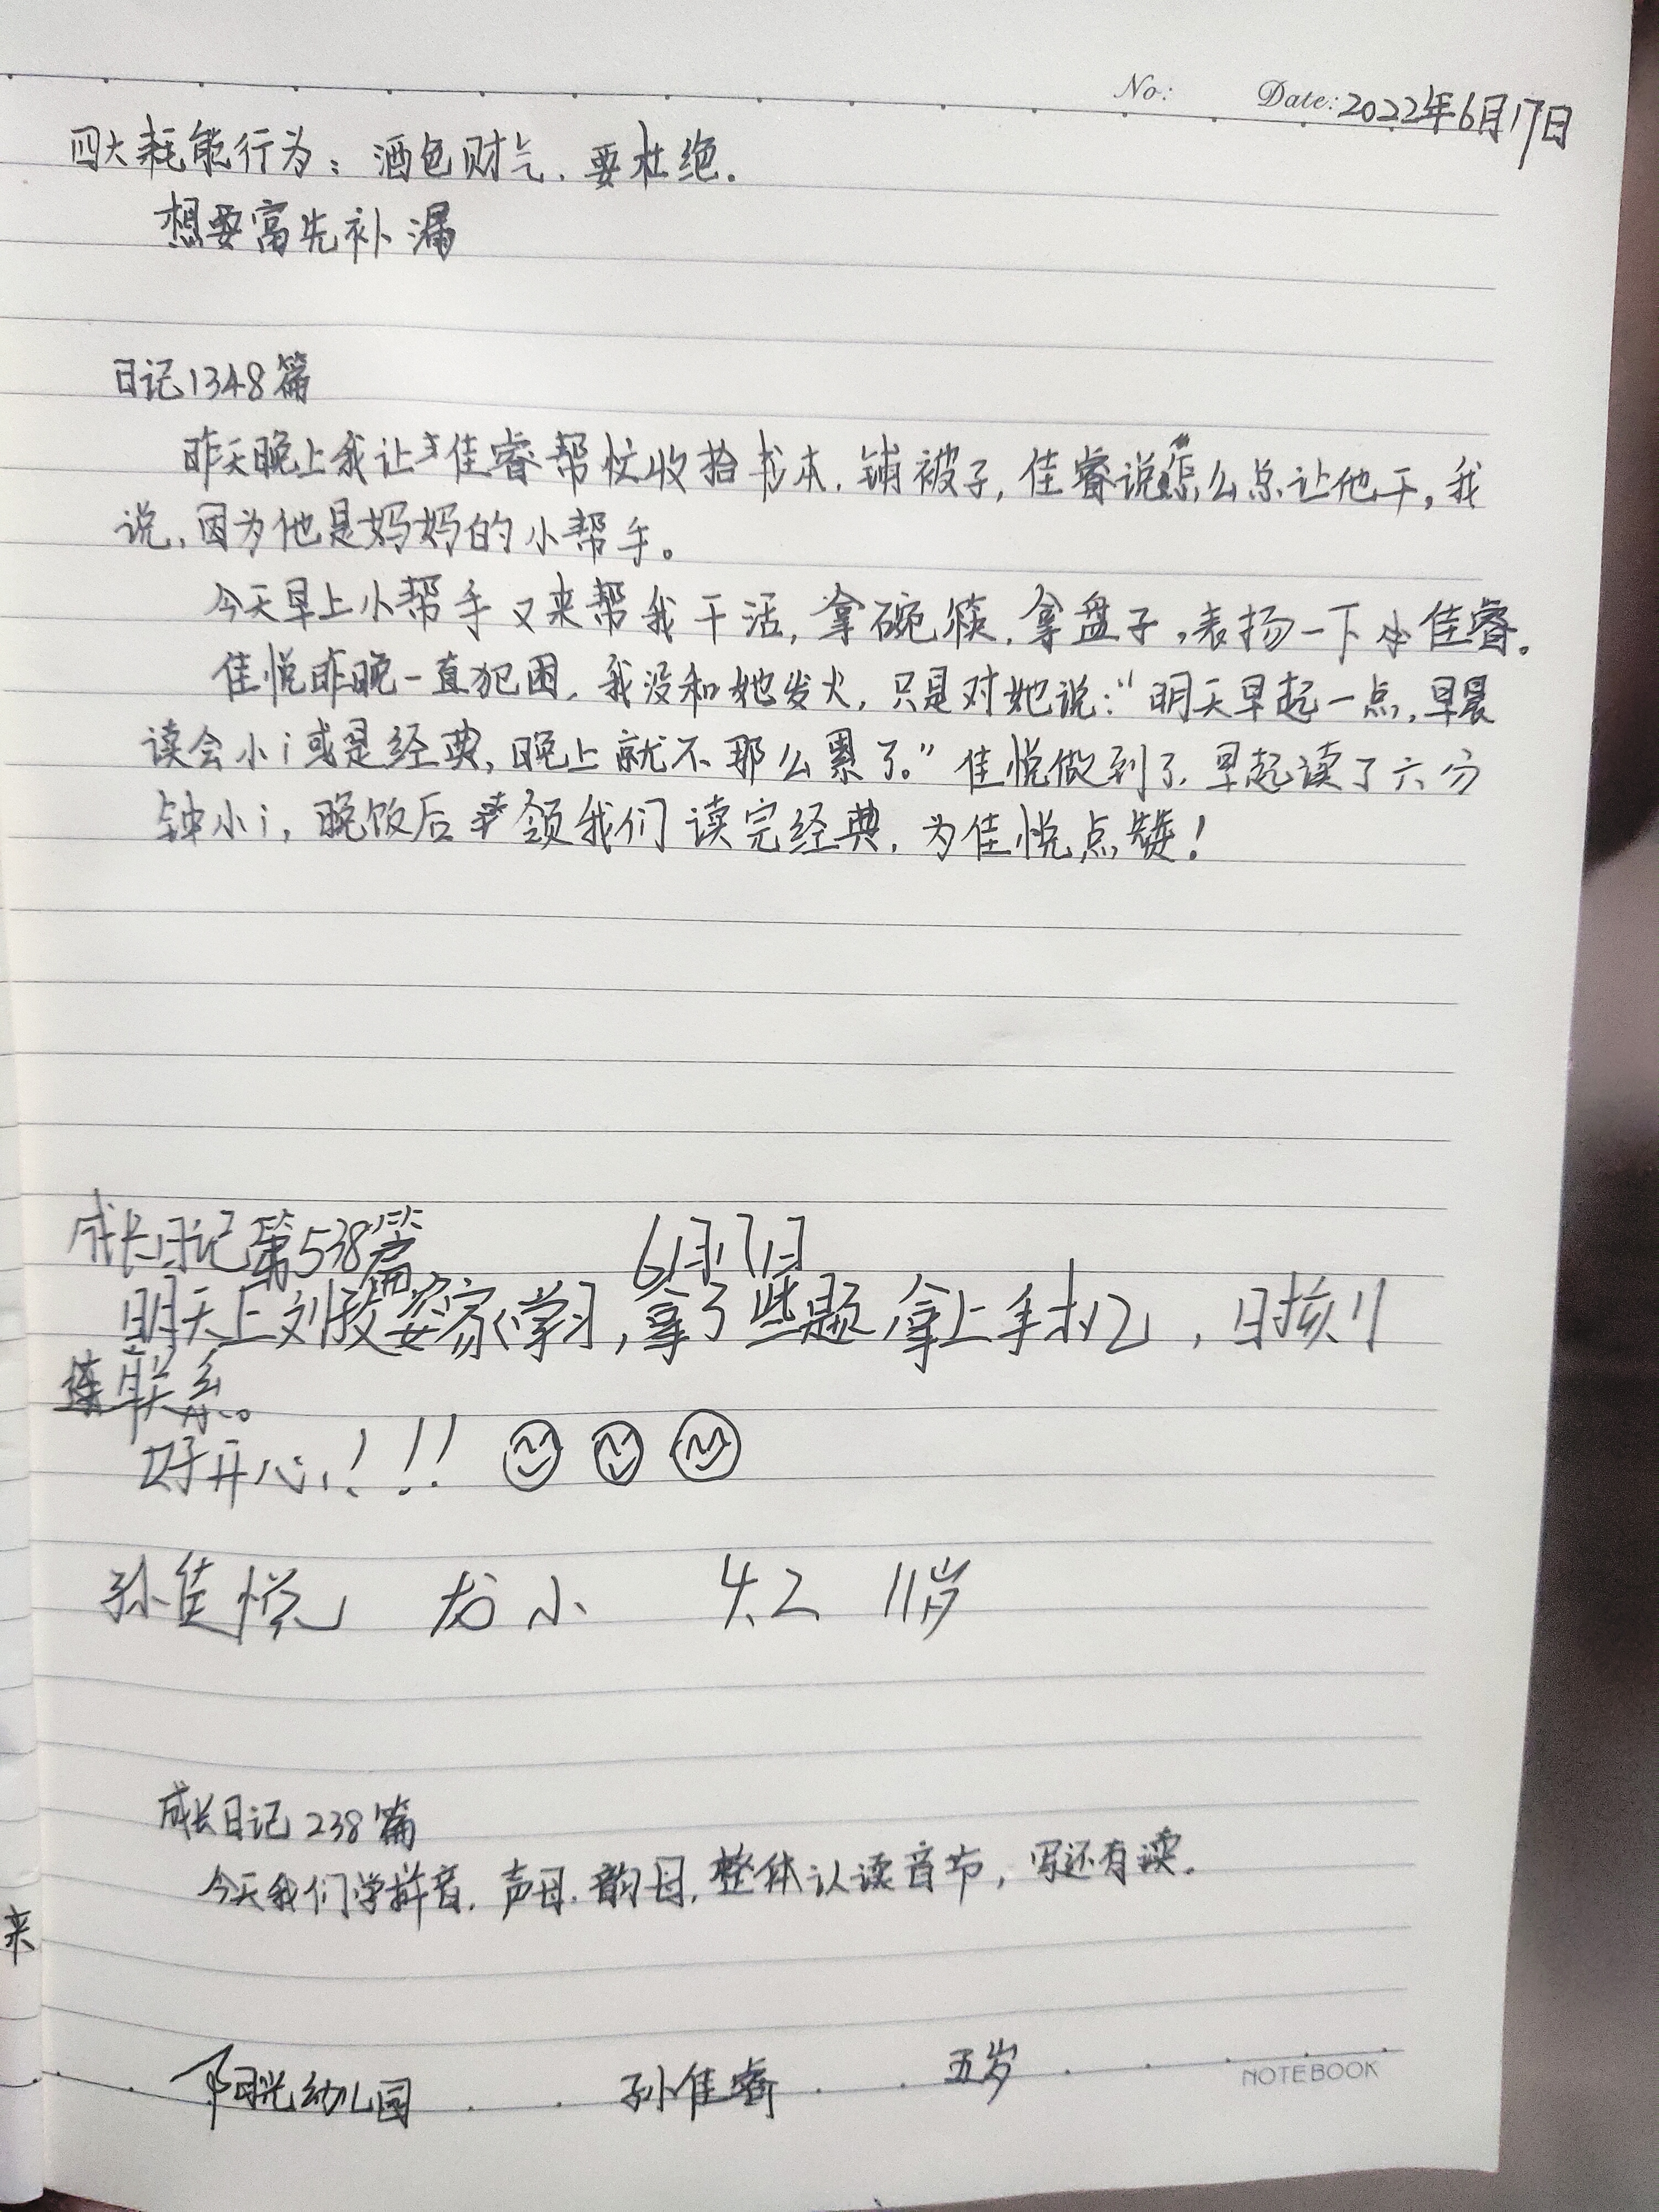 No: Date: 2022年6月17日
四大耗能行为：酒色财气、要杜绝.
想要富先补漏
日记1348篇
昨天晚上我让佳睿帮忙收拾书本,铺被子,佳睿说怎么总让他干,我
说,因为他是妈妈的小帮手。
今天早上小帮手又来帮我干活,拿碗筷,拿盘子,表扬一下佳睿。
佳悦昨晚一直犯困,我没和她发火,只是对她说:“明天早起一点,早晨
读会小i或是经典,晚上就不那么累了。”佳悦做到了,早起读了六分
钟小i,晚饭后领我们读完经典,为佳悦点赞!
成长日记第538篇 6月17日
明天上刘家学习,拿了些题,拿上手机,
联系。
好开心!!!
孙佳悦 龙小 4.2 11岁
成长日记238篇
今天我们学拼音,声母.韵母,整体认读音节,写还有读.
来
阳光幼儿园 孙佳睿 五岁
NOTEBOOK